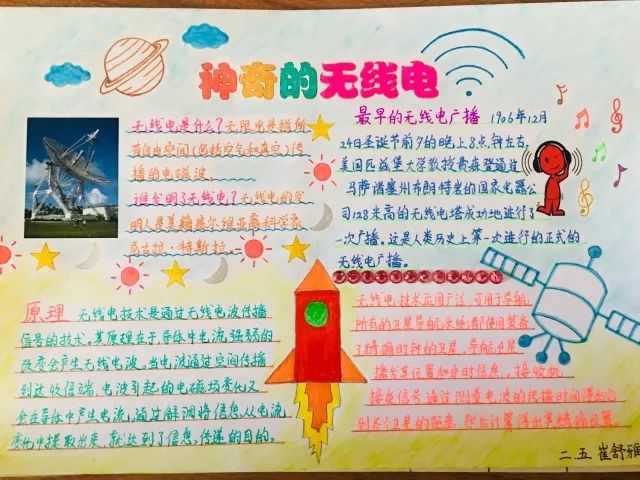 神奇的无线电
无线电是什么？无限电是指所
有自由空间（包括空气和真空）传
播的电磁波。
谁发明了无线电？无线电的发
明人是美籍塞尔维亚裔科学家
尼古拉·特斯拉。
最早的无线电广播 1906年12月
24日圣诞节前夕的晚上8点钟左右，
美国匹兹堡大学教授费森登通过
马萨诸塞州布朗特岩的国家电器公
司128米高的无线电塔成功地进行了
一次广播。这是人类历史上第一次进行的正式的
无线电广播。
原理 无线电技术是通过无线电波传播
信号的技术。其原理在于导体中电流强弱的
改变会产生无线电波。当电波通过空间传播
到达收信端，电波引起的电磁场变化又
会在导体中产生电流，通过解调将信息从电流
变化中提取出来，就达到了信息传递的目的。
无线电技术应用广泛，可用于导航。
所有的卫星导航系统都使用装备
了精确时钟的卫星。导航卫星
播发其位置和定时信息。接收机
接受信号通过测量电波的传播时间得出它
到各个卫星的距离，然后计算得出其精确位置。
二.五 崔舒雅